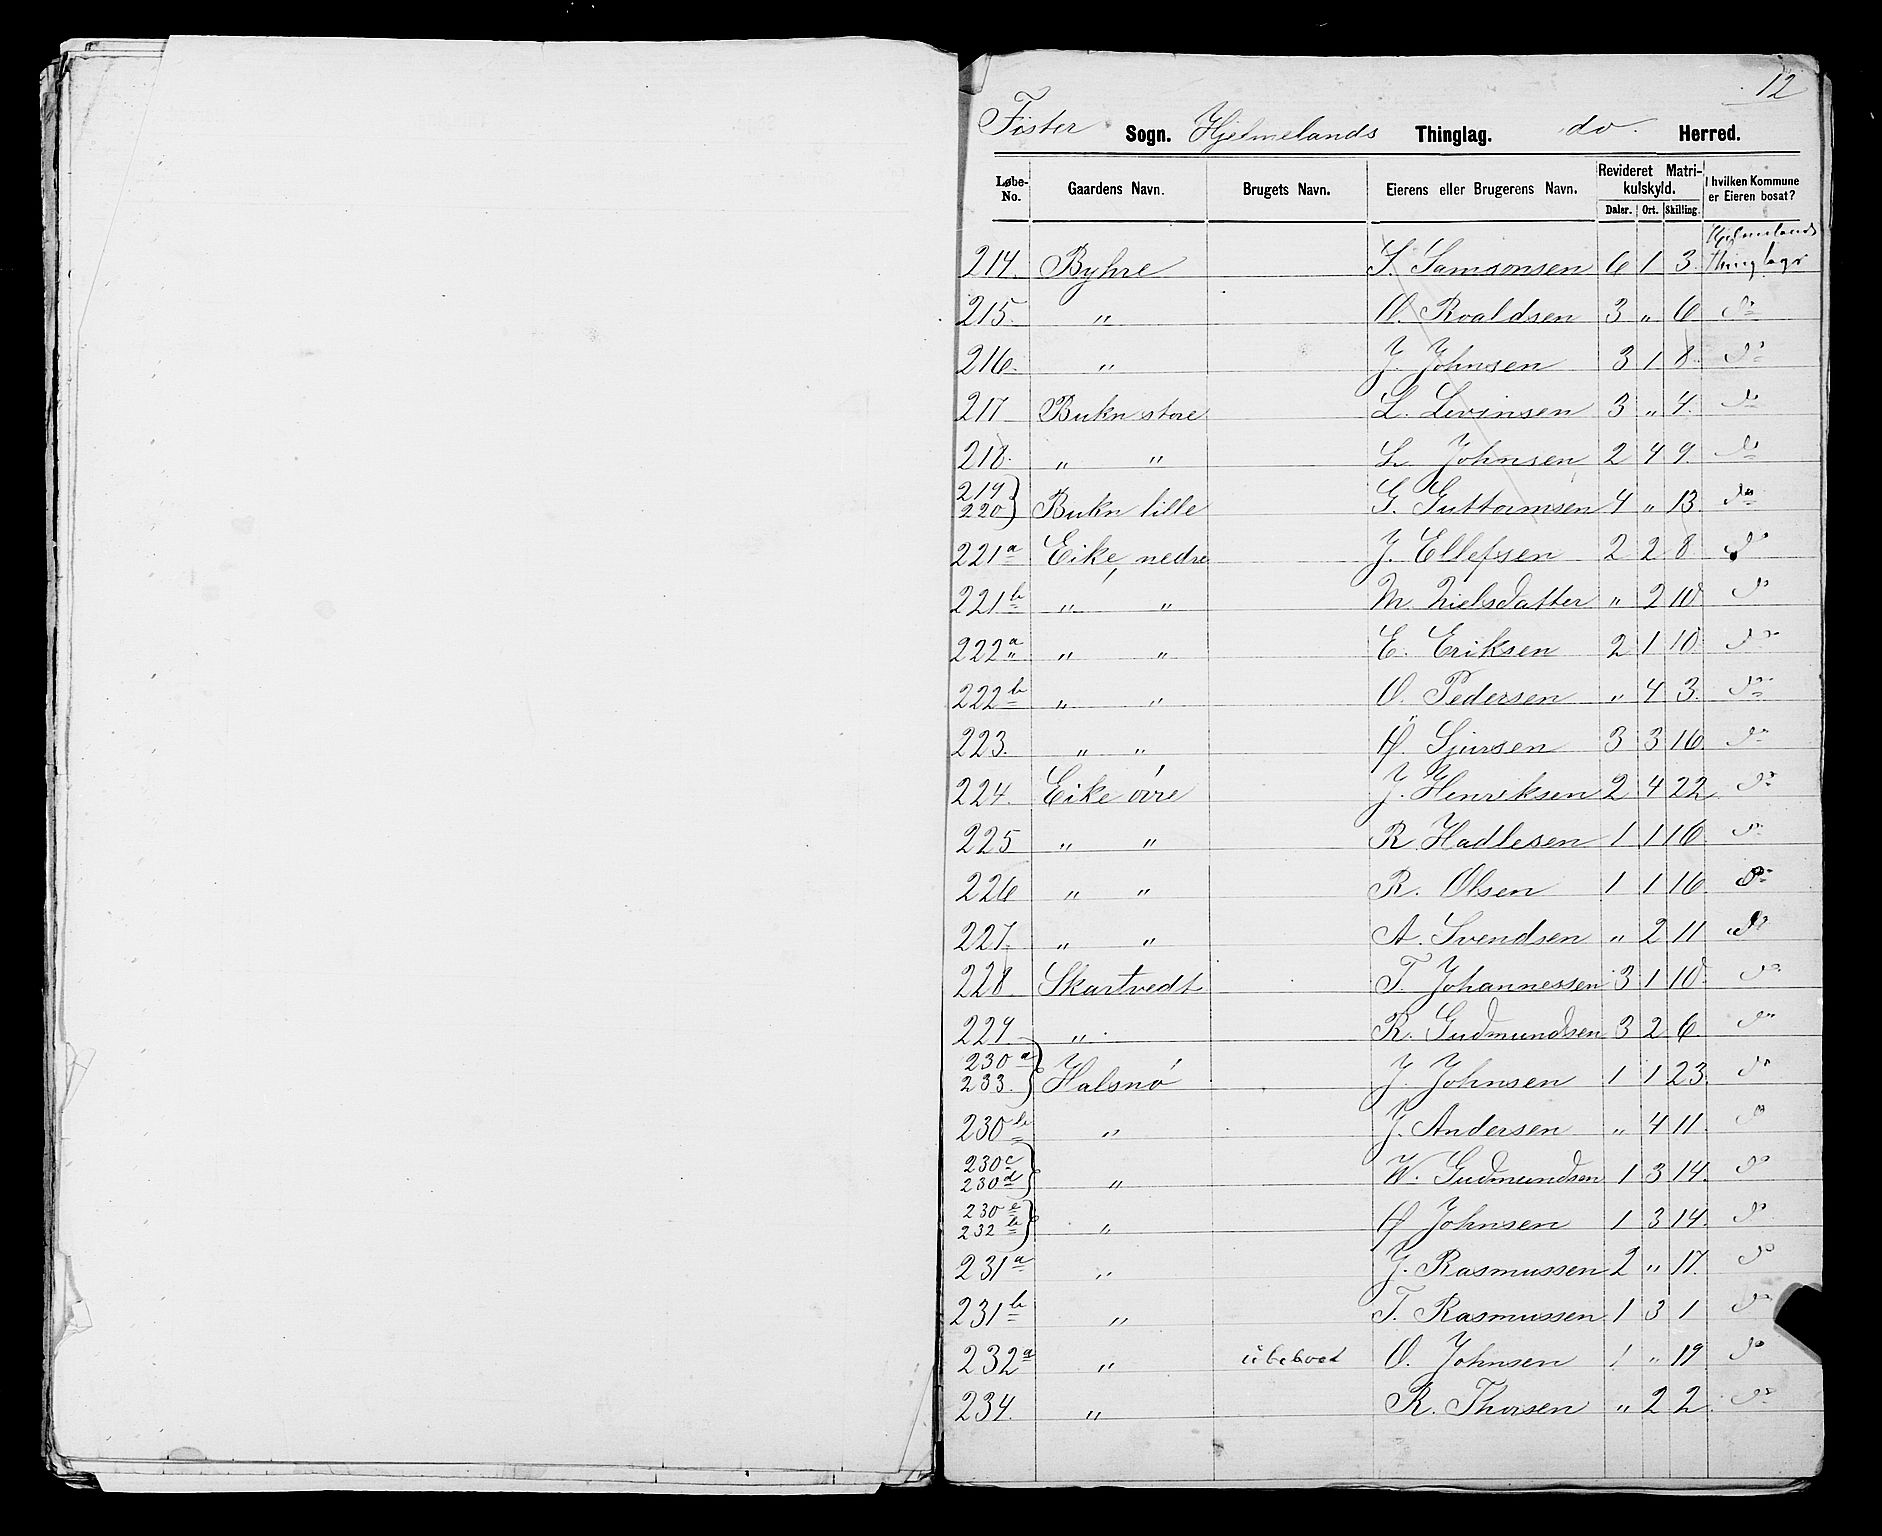 12
Fister Sogn. Hjelmelands Thinglag. do. Herred.
Løbe-No. Gaardens Navn. Brugets Navn. Eierens eller Brugerens Navn. Revideret Matrikulskyld. Daler. Ort. Skilling. I hvilken Kommune er Eieren bosat?
214. Byhre S. Samsonsen 6 1 3. Hjelmelands Thinglags
215. " O. Roaldsen 3 " 6 do
216. " J. Johnsen 3 1 8. do
217 Bukn store L. Levinsen 3 " 4. do
218. " " L. Johnsen 2 4 9. do
219 220 } Bukn lille G. Guttormsen 4 " 13. do
221a Eike, nedre J. Ellefsen 2 2 8. do
221b " " M. Nielsdatter " 2 10 do
222a " " E. Eriksen 2 1 10 do
222b " " O. Pedersen " 4 3. do
223. " " Ø. Sjursen 3 3 16 do
224. Eike øvre J. Henriksen 2 4 22 do
225 " " R. Hadlesen 1 1 16. do
226 " " R. Olsen 1 1 16. do
227. " " A. Svendsen " 2 11 do
228 Skartvedt T. Johannessen 3 1 10. do
229. " R. Gudmundsen 3 2 6 do
230a 233. } Halsnø J. Johnsen 1 1 23. do
230b " J. Andersen " 4 11. do
230c 230d } " W. Gudmundsen 1 3 14. do
230e 232b } " Ø Johnsen 1 3 14. do
231a " J. Rasmussen 2 " 17. do
231b " T. Rasmussen 1 3 1 do
232a " ubeboet O. Johnsen 1 " 19 do
234. " R. Thorsen " 2 2 do